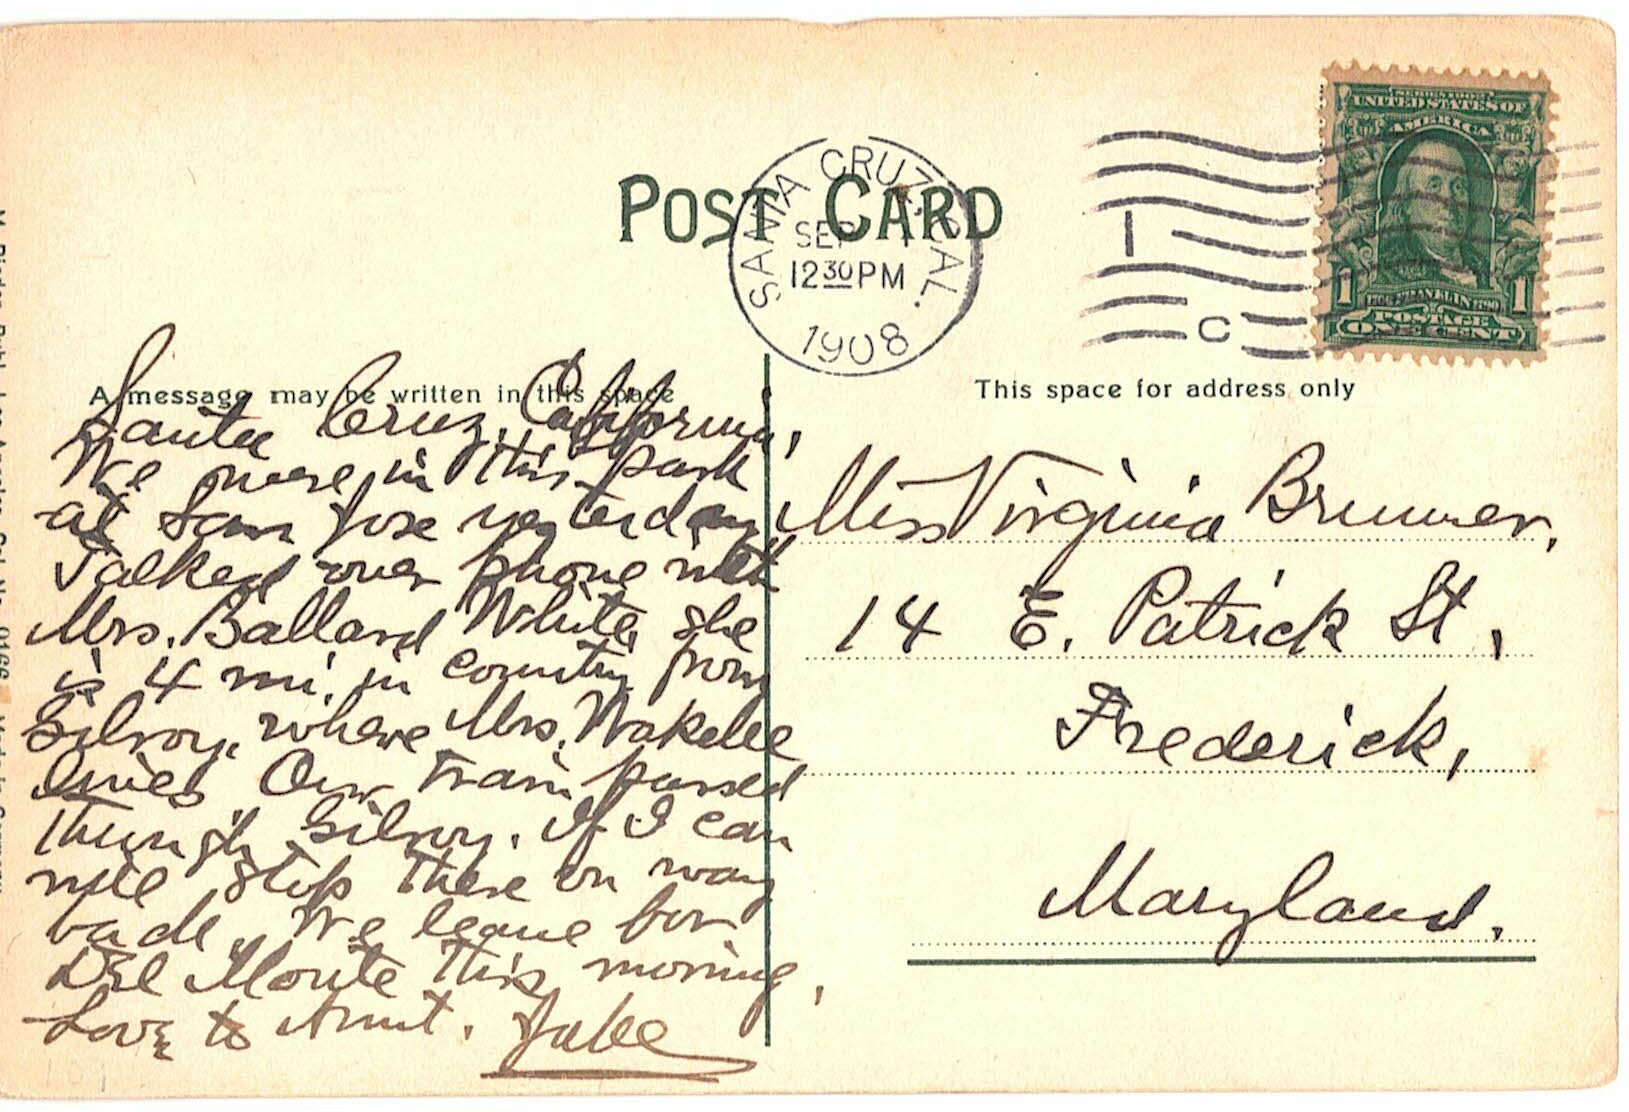 POST CARD
SANTA CRUZ, CAL.
SEP
12 30 PM
1908
1
C
SERIES 1902
UNITED STATES OF
AMERICA
1 FRANKLIN 1790 1
POSTAGE
ONE CENT
A message may be written in this space
This space for address only
Santa Cruz, California,
We were in this park
at San Jose yesterday
Talked over phone with
Mrs. Ballard White, she
is 4 mi. in country from
Gilroy, where Mrs. Wakelee
lives Our train passed
through Gilroy. If I can
will stop there on way
back. We leave for
Del Monte this morning,
Love to Aunt.
Miss Virginia Brunner,
14 E. Patrick St,
Frederick,
Maryland.